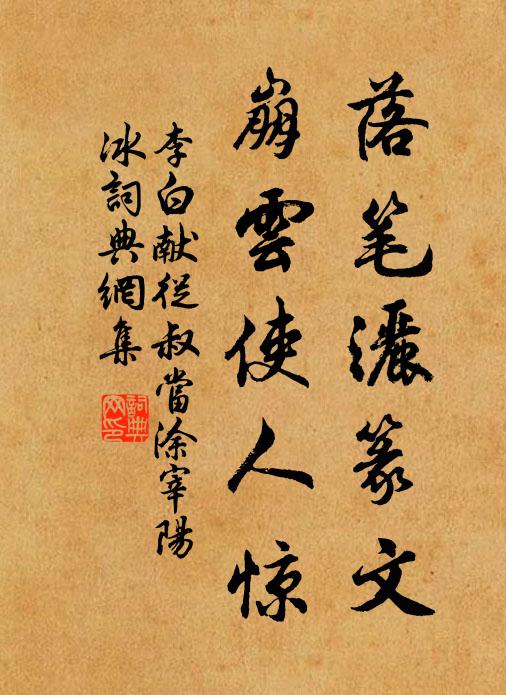 落笔灑篆文
崩雲使人惊
李白献從叔當涂宰陽
冰詞典網集
詞典
网印